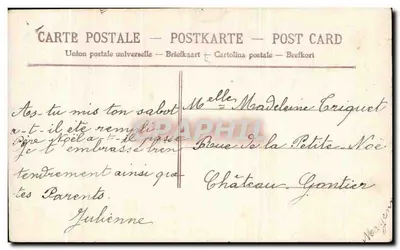 CARTE POSTALE – POSTKARTE – POST CARD
Union postale universelle – Briefkaart – Cartolina postale – Brefkort
As-tu mis ton sabot
a-t-il été rempli
Père Noël a-t-il passé
je t'embrasse bien
tendrement ainsi que
tes Parents.
Julienne
Melle Madeleine Triquet
Rue de la Petite Noë
Château-Gontier